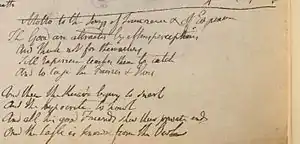 Motto to the Songs of Innocence & of Experience
The Good are attracted by Mens perceptions
And Think not for themselves
Till Experience teaches them to catch
And to cage the Fairies & Elves
And then the Knave begins to snarl
And the Hypocrite to howl
And all his good Friends shew their private ends
And the Eagle is known from the Owl